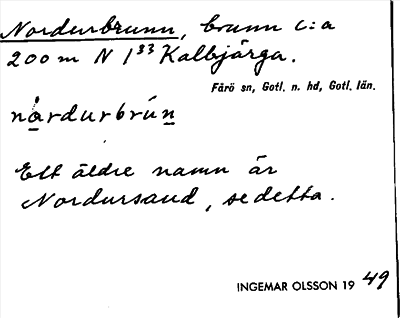 Nordurbrunn, brunn c:a
200 m N 1³³ Kalbjärga.
Fårö sn, Gotl. n. hd, Gotl. län.
nårdurbrún
Ett äldre namn är
Nordursand, se detta.
INGEMAR OLSSON 19 49